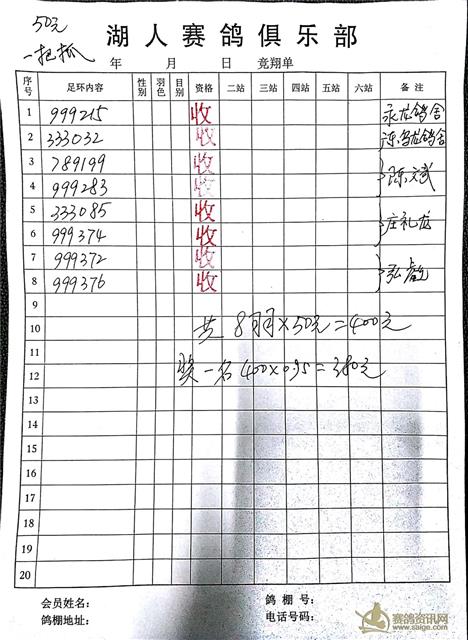 50元
一把抓
湖人赛鸽俱乐部
年 月 日 竞翔单
序号 足环内容 性别 羽色 目别 资格 二站 三站 四站 五站 六站 备注
1 999215 收 永龙鸽舍
2 333032 收 鸽舍
3 789199 收
4 999283 收 陈文斌
5 333085 收
6 999374 收 庄礼龙
7 999372 收
8 999376 收 弘
9
10 共8羽×50元=400元
11
12 奖一名400×0.95=380元
13
14
15
16
17
18
19
20
会员姓名： 鸽棚号：
鸽棚地址： 电话号码：
赛鸽资讯网
www.saige.com